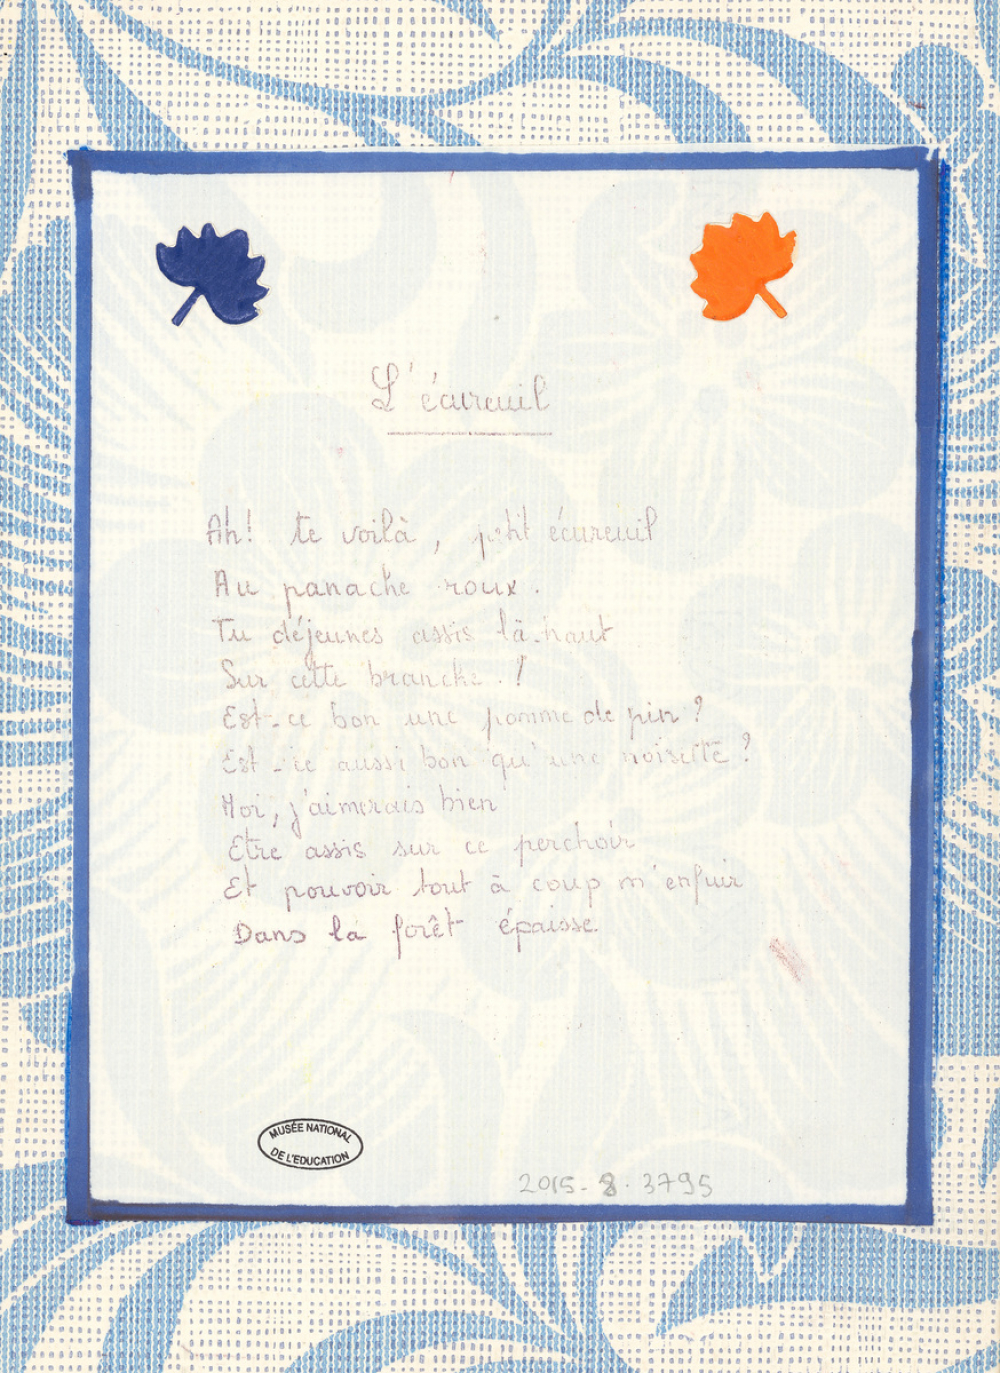 L'écureuil
Ah! te voilà, p'tit écureuil
Au panache roux.
Tu déjeunes assis là-haut
Sur cette branche.!
Est-ce bon une pomme de pin ?
Est-ce aussi bon qu'une noisette ?
Moi, j'aimerais bien
Etre assis sur ce perchoir
Et pouvoir tout à coup m'enfuir
Dans la forêt épaisse.
MUSÉE NATIONAL
DE L'EDUCATION
2015-8.3795